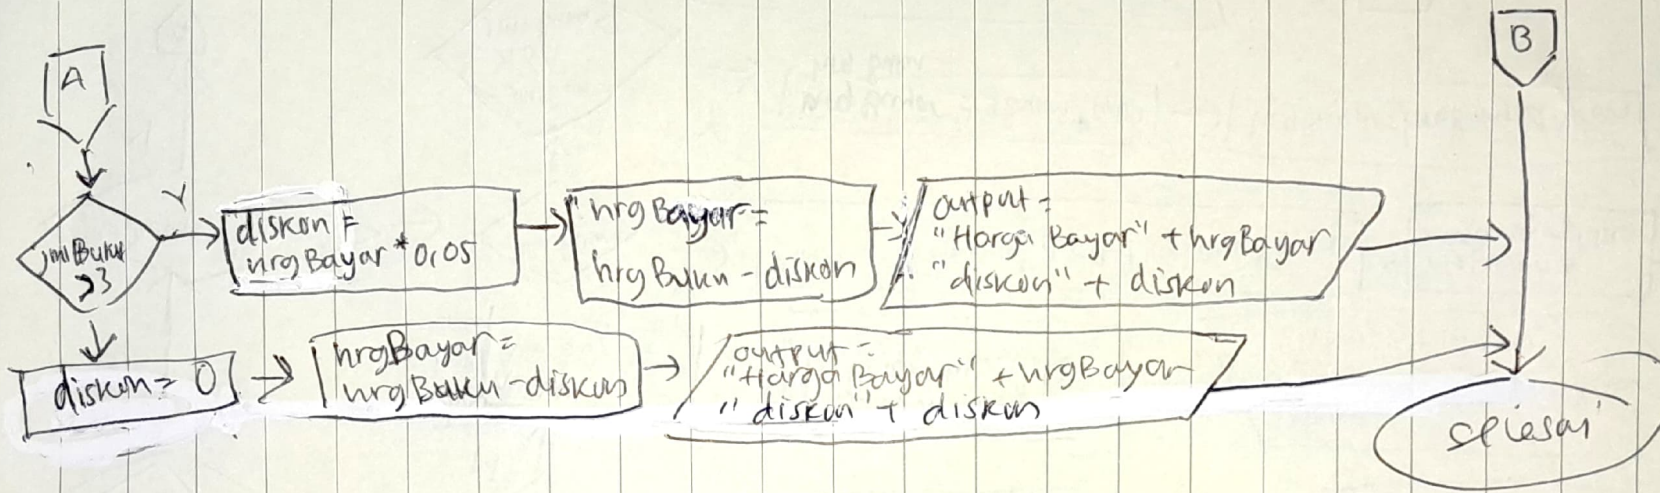 A
B
Y
jmlBuku
>3
diskon =
hrgBayar * 0,05
hrgBayar =
hrgBuku - diskon
output =
"Harga Bayar" + hrgBayar
"diskon" + diskon
diskon = 0
hrgBayar =
hrgBuku - diskon
output =
"Harga Bayar" + hrgBayar
"diskon" + diskon
selesai